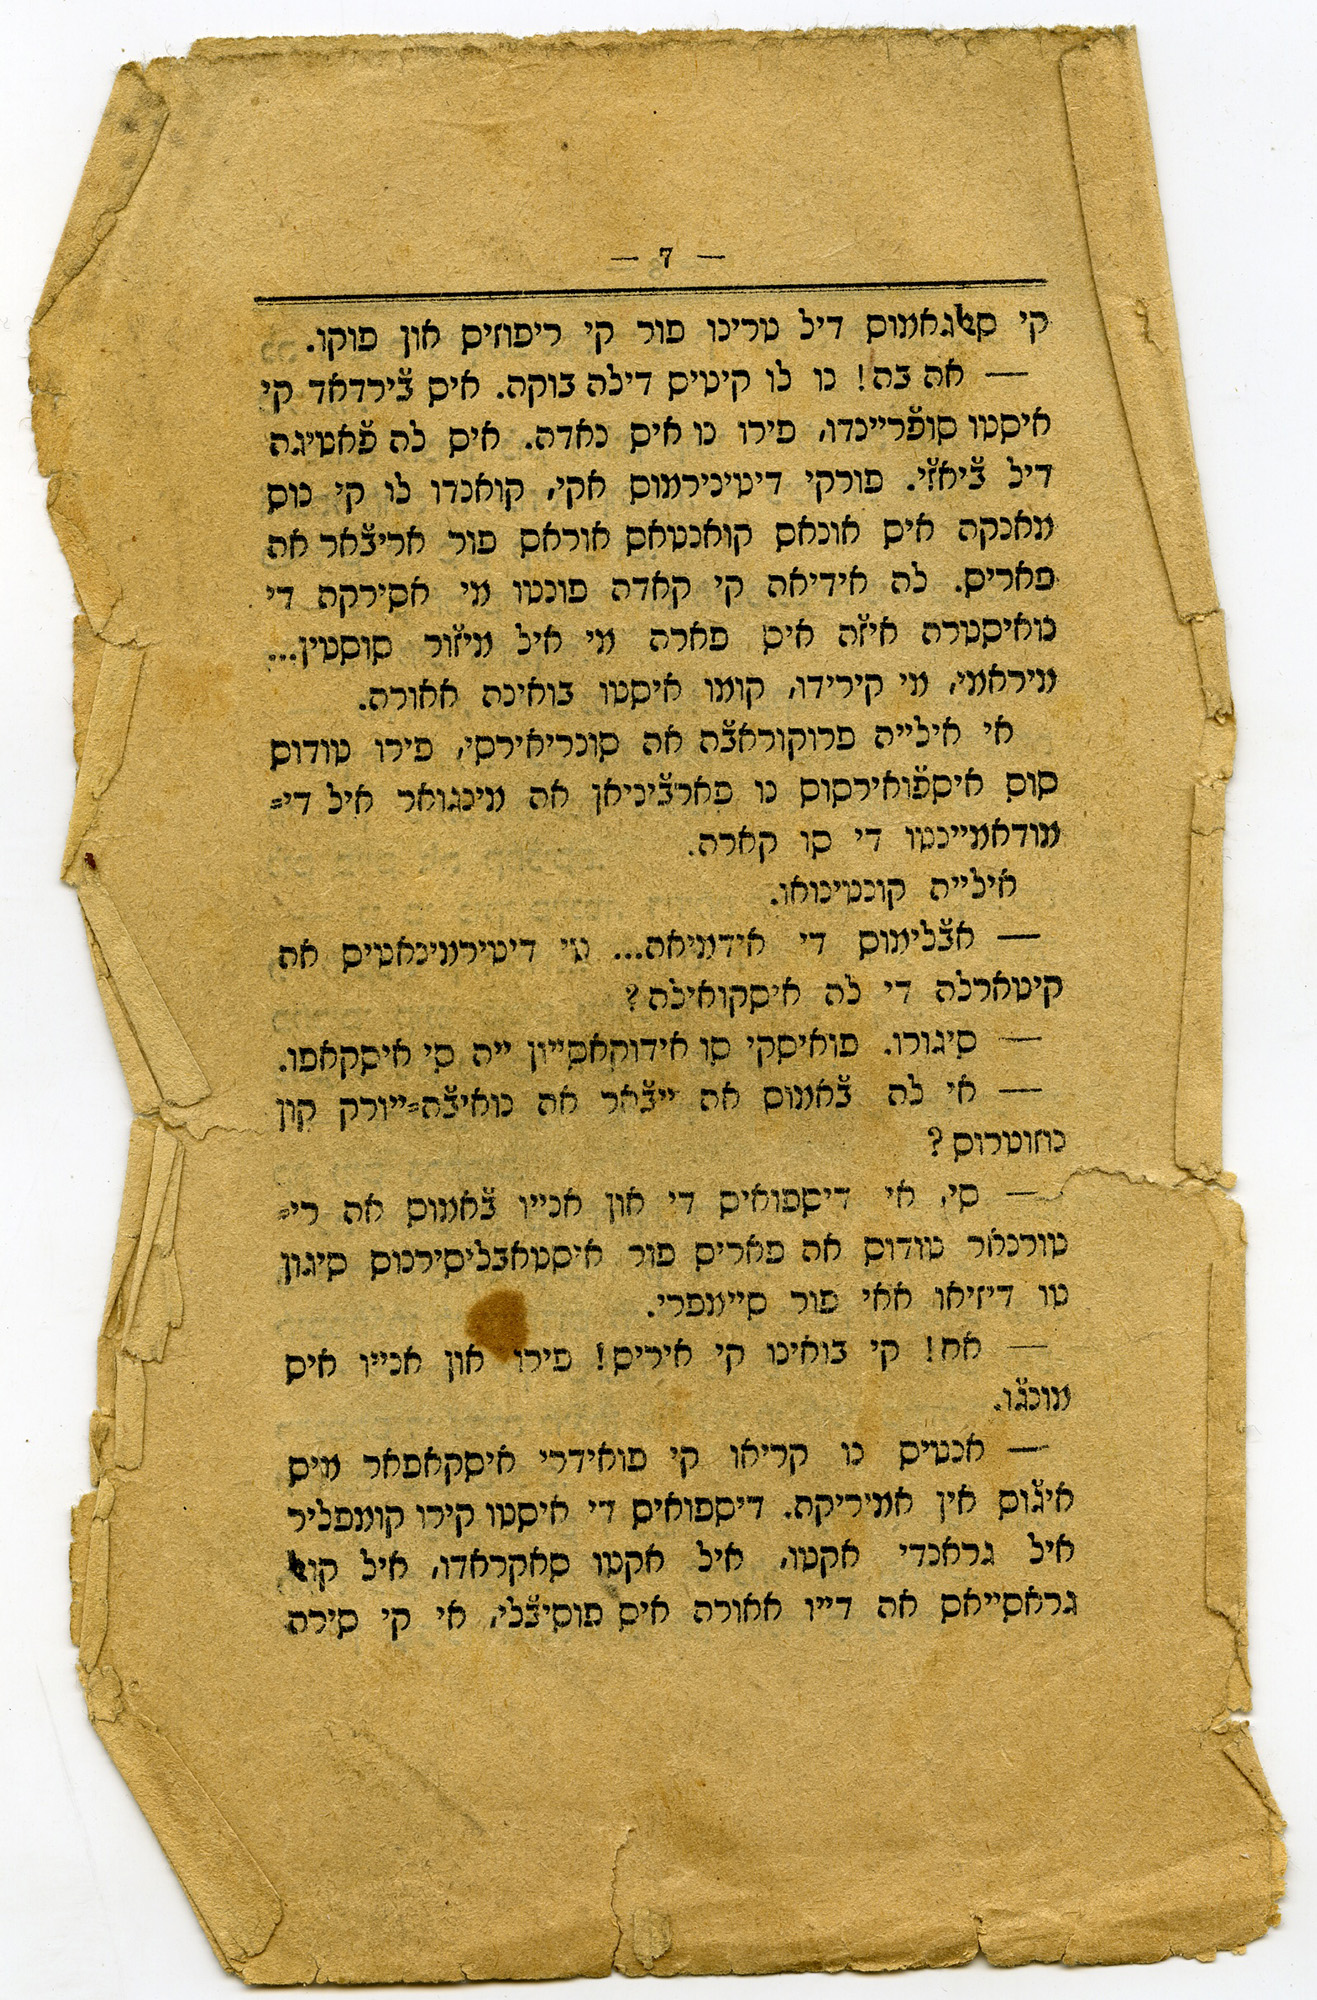 — 7 —
קי סאלגאמוס דיל טרינו פור קי ריפוזיס און פוקו.
— אה בה! נו לו קיטיס דילה בוקה. איס ב֘ירדאד קי
איסטו סופ֘רייכדו, פירו נו איס נאדה. איס לה פ֘אטיגה
דיל ב֘יאז֘י. פורקי דיטינירמוס אקי, קואנדו לו קי נוס
מאנקה איס אונאס קואנטאס אוראס פור אריב֘אר אה
פאריס. לה אידיאה קי קאדה פונטו מי אסירקה די
נואיסטרה איז֘ה איס פארה מי איל מיז֘ור סוסטין...
מיראמי, מי קירידו, קומו איסטו בואינה אאורה.
אי אילייה פרוקוראב֘ה אה סונריאירסי, פירו טודוס
סוס איספ֘ואירסוס נו פארב֘יניאן אה מינגואר איל די=
מודאמיינטו די סו קארה.
אילייה קונטינואו.
— אב֘לימוס די אידמיאה... טי דיטירמינאטיס אה
קיטארלה די לה איסקואילה?
— סיגורו. פואיסקי סו אידוקאסייון ייה סי איסקאפו.
— אי לה ב֘אמוס אה ייב֘אר אה נואיב֘ה=ייורק קון
נוזוטרוס?
— סי, אי דיספואיס די און אנייו ב֘אמוס אה רי=
טורנאר טודוס אה פאריס פור איסטאבליסירנוס סיגון
טו דיזיאו אאי פור סיימפרי.
— אח! קי בואינו קי איריס! פירו און אנייו איס
מונג֘ו.
— אנטיס נו קריאו קי פואידרי איסקאפאר מיס
איג֘וס אין אמיריקה. דיספואיס די איסטו קירו קומפליר
איל גראנדי אקטו, איל אקטו סאקראדו, איל קואל
גראסייאס אה דייו אאורה איס פוסיב֘לי, אי קי סירה